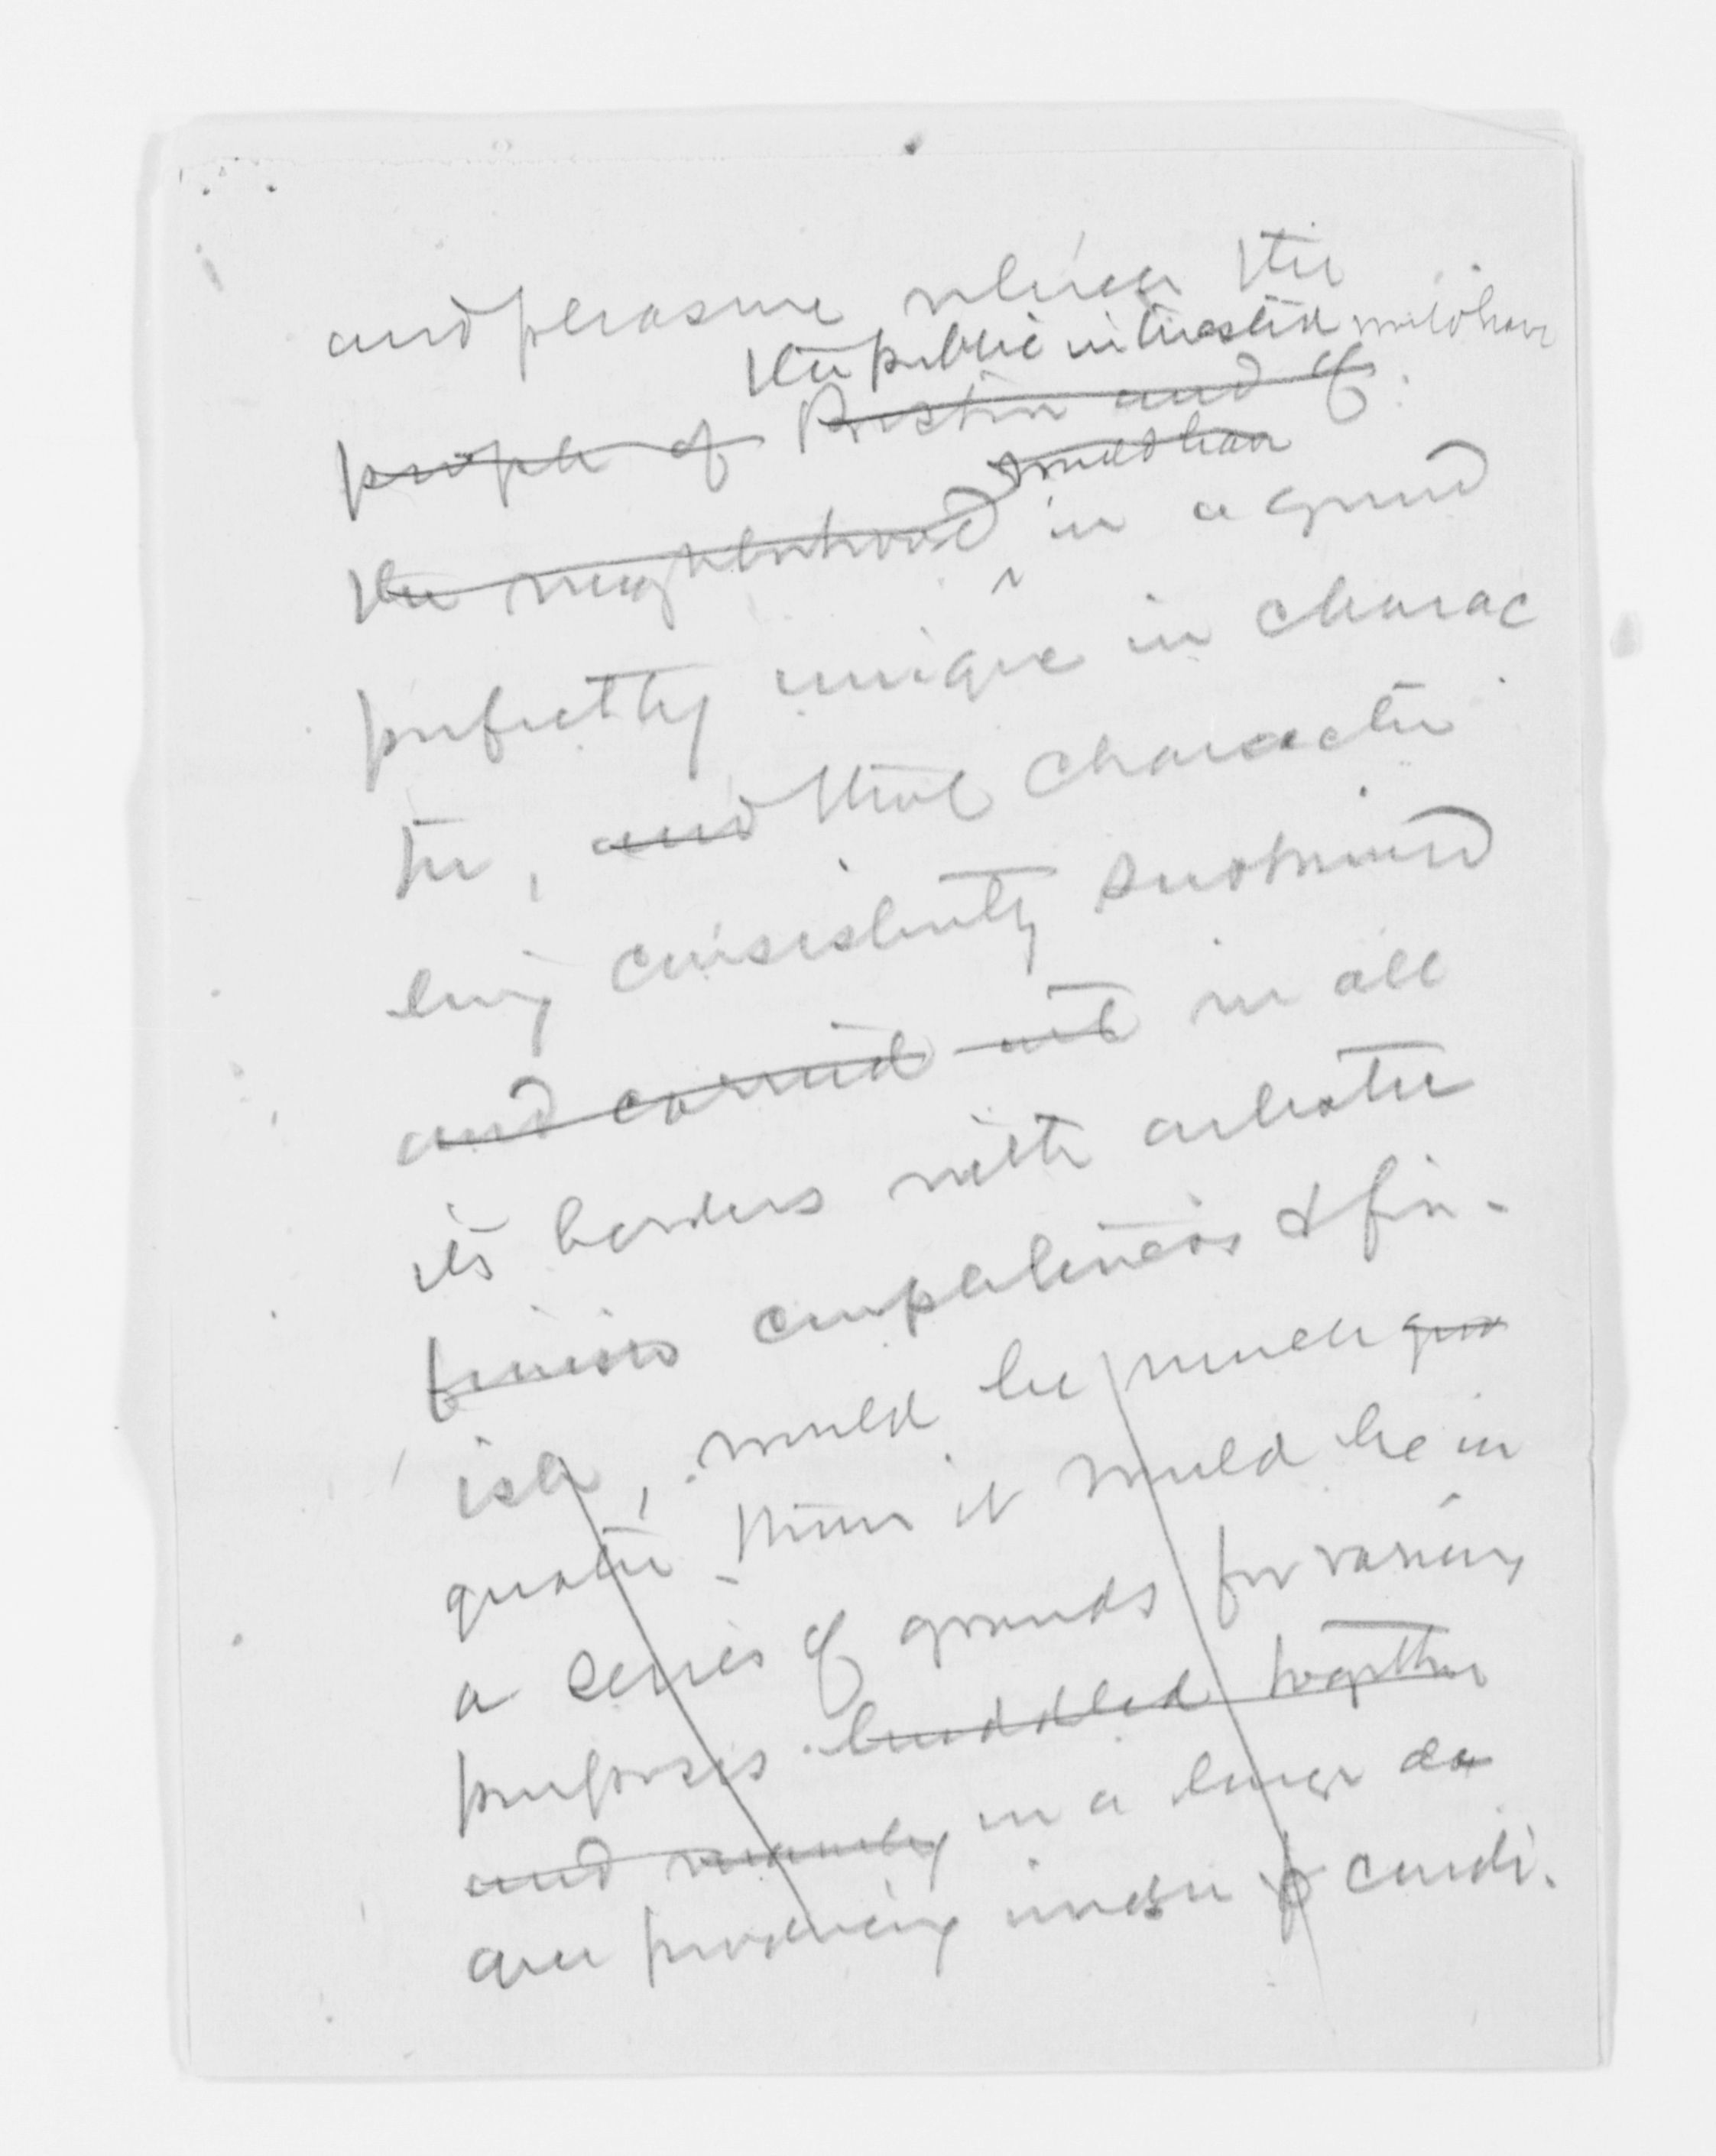 and pleasure which the
the public interested would have
people of Boston and of
would have
the neighborhood in a ground
perfectly unique in charac
ter, and that character
being consistently sustained
and carried out in all
its borders with artistic
finish completeness & fin-
ish, would be much grea
greater than it would be in
a series of grounds for various
purposes huddled together
and in a large
producing under condi-